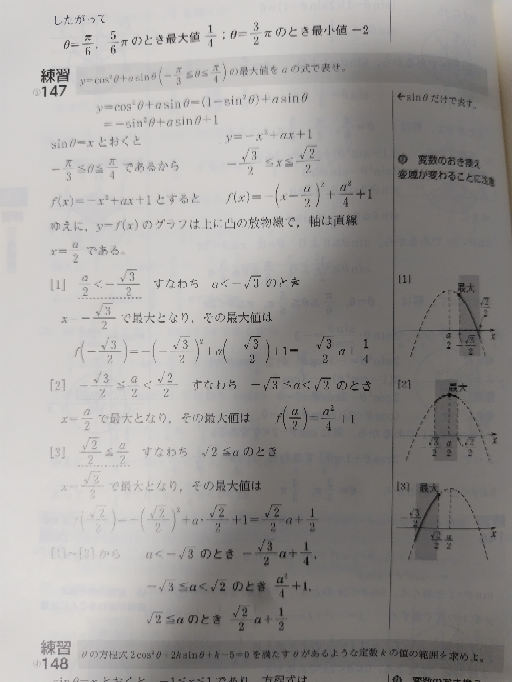 したがって
θ=π/6, 5/6πのとき最大値 1/4 ; θ=3/2πのとき最小値 −2
練習
①147
y=cos²θ+a sinθ(−π/3≦θ≦π/4)の最大値をaの式で表せ。
y=cos²θ+a sinθ=(1−sin²θ)+a sinθ
←sinθだけで表す。
=−sin²θ+a sinθ+1
sinθ=xとおくと y=−x²+ax+1
−π/3≦θ≦π/4であるから −√3/2≦x≦√2/2
変数のおき換え
変域が変わることに注意
f(x)=−x²+ax+1とすると f(x)=−(x−a/2)²+a²/4+1
ゆえに，y=f(x)のグラフは上に凸の放物線で，軸は直線
x=a/2である。
[1] a/2<−√3/2 すなわち a<−√3のとき
x=−√3/2で最大となり，その最大値は
f(−√3/2)=−(−√3/2)²+a(−√3/2)+1=−√3/2 a+1/4
[2] −√3/2≦a/2<√2/2 すなわち −√3≦a<√2のとき
x=a/2で最大となり，その最大値は f(a/2)=a²/4+1
[3] √2/2≦a/2 すなわち √2≦aのとき
x=√2/2で最大となり，その最大値は
f(√2/2)=−(√2/2)²+a・√2/2+1=√2/2 a+1/2
[1]~[3]から a<−√3のとき −√3/2 a+1/4,
−√3≦a<√2のとき a²/4+1,
√2≦aのとき √2/2 a+1/2
[1]
最大
√2/2
a/2 −√3/2 x
[2]
最大
−√3/2 a/2 √2/2 x
[3]
最大
−√3/2
√2/2 a/2 x
練習
④148
θの方程式2cos²θ+2k sinθ+k−5=0を満たすθがあるような定数kの値の範囲を求めよ。
sinθ=xとおくと，−1≦x≦1であり，方程式は